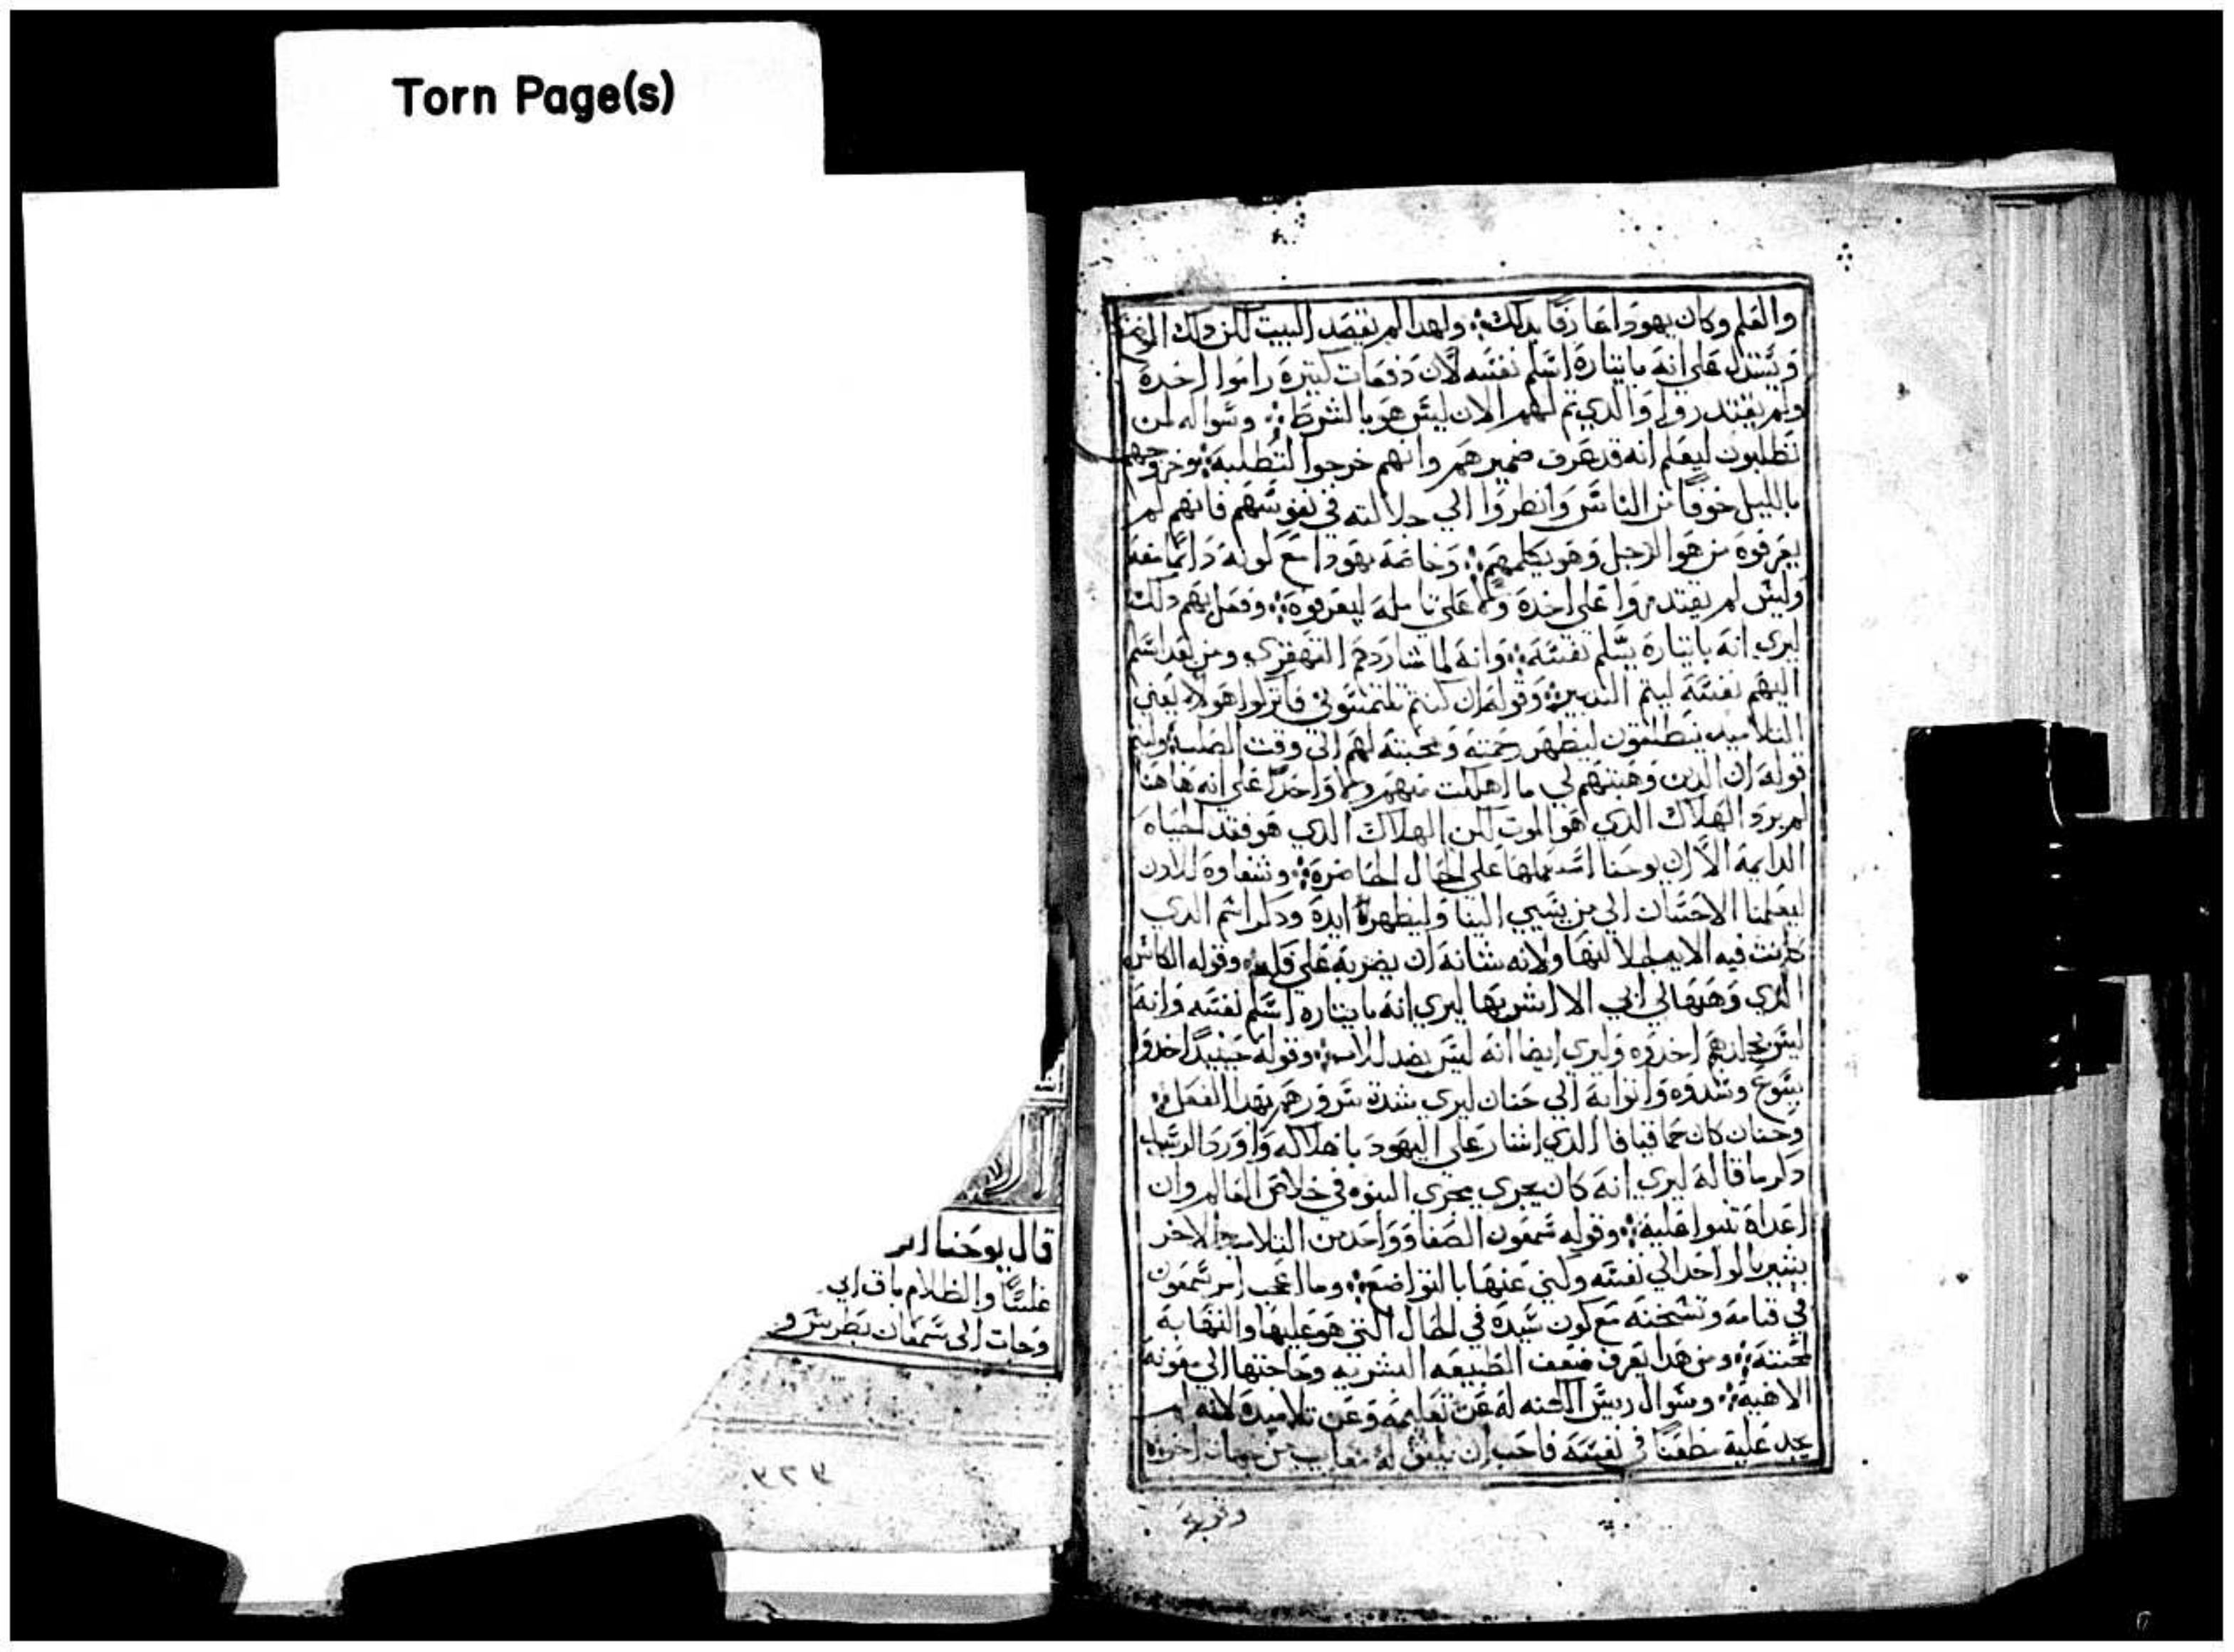 Torn Page(s)
والعلم وكان يهودا عارفا بدلك ولهدا لم يقصد البيت لكن دلك الموضع
ويستدل على انه بايتاره اسلم نفسه لان دفعات كتيرة راموا اخده
ولم يقتدروا والدي تم لهم الان ليس هو بالشوط وسواله لمن
تطلبون ليعلم انه قد عرف ضميرهم وانهم خرجوا لتطلبه وخروجهم
بالليل خوفا من الناس وانظروا الي جلالته في نفوسهم فانهم لم
يعرفوه من هو الرجل وهو يكلمهم وخاصة يهودا مع كونه دايما معه
وليس لم يقتدروا على اخده ولا على تامله ليعرفوه وفعل بهم دلك
ليري انه بايتاره يسلم نفسه وانه لما شا ردهم القهقري ومن بعد اسلم
اليهم نفسه ليتم التدبير وقوله ان كنتم تلتمسوني فاتركوا هولاء يعني
التلاميد ينطلقون ليظهر رحمته ومحبته لهم الي وقت الصلب وليتم
قوله ان الدين وهبتهم لي ما اهلكت منهم ولا واحدا على انه هاهنا
لم يرد الهلاك الدي هو الموت لكن الهلاك الدي هو فقد الحياه
الدايمة الا ان يوحنا استعملها على الحال الحاضرة وشفاوه للادن
ليعلمنا الاحسان الي من يسي الينا وليظهر ايده ودكر اسم الدي
كانت فيه الايه لجلالتها ولانه شانه ان يضربه على فله وقوله الكاس
الدي وهبها لي ابي الا اشربها ليري انه بايتاره اسلم نفسه وانه
ليس بجلدهم اخدوه وليري ايضا انه ليس بضد للاب وقوله حينيد اخدوا
يسوع وشدوه واتوا به الي حنان ليري شدة سرورهم بهدا الفعل
وحنان كان حما قيافا الدي اشار على اليهود باهلاكه واورد الرسول
دكر ما قاله ليري انه كان يجري مجري النبوه في خلاص العالم وان
اعداه تنبوا عليه وقوله سمعون الصفا وواحد من التلاميد الاخر
يشير بالواحد الي نفسه وكني عنها بالتواضع وما اعجب امر سمعون
في قيامه وتسخنه مع كون سيده في الحال التي هو عليها والتهابه
لمحبته ومن هدا يعرف ضعف الطبيعه البشريه وحاجتها الي معونة
الاهية وسوال ريس الكهنه له عن تعاليمه وعن تلاميده لانه لم
يجد عليه مطعنا في نفسه فاحب ان يتفق له معايب من جهات اخري
وقوله
قال يوحنا ان
غلسا والظلام باق الي
وجات الي سمعان بطرس و
٣٢٣